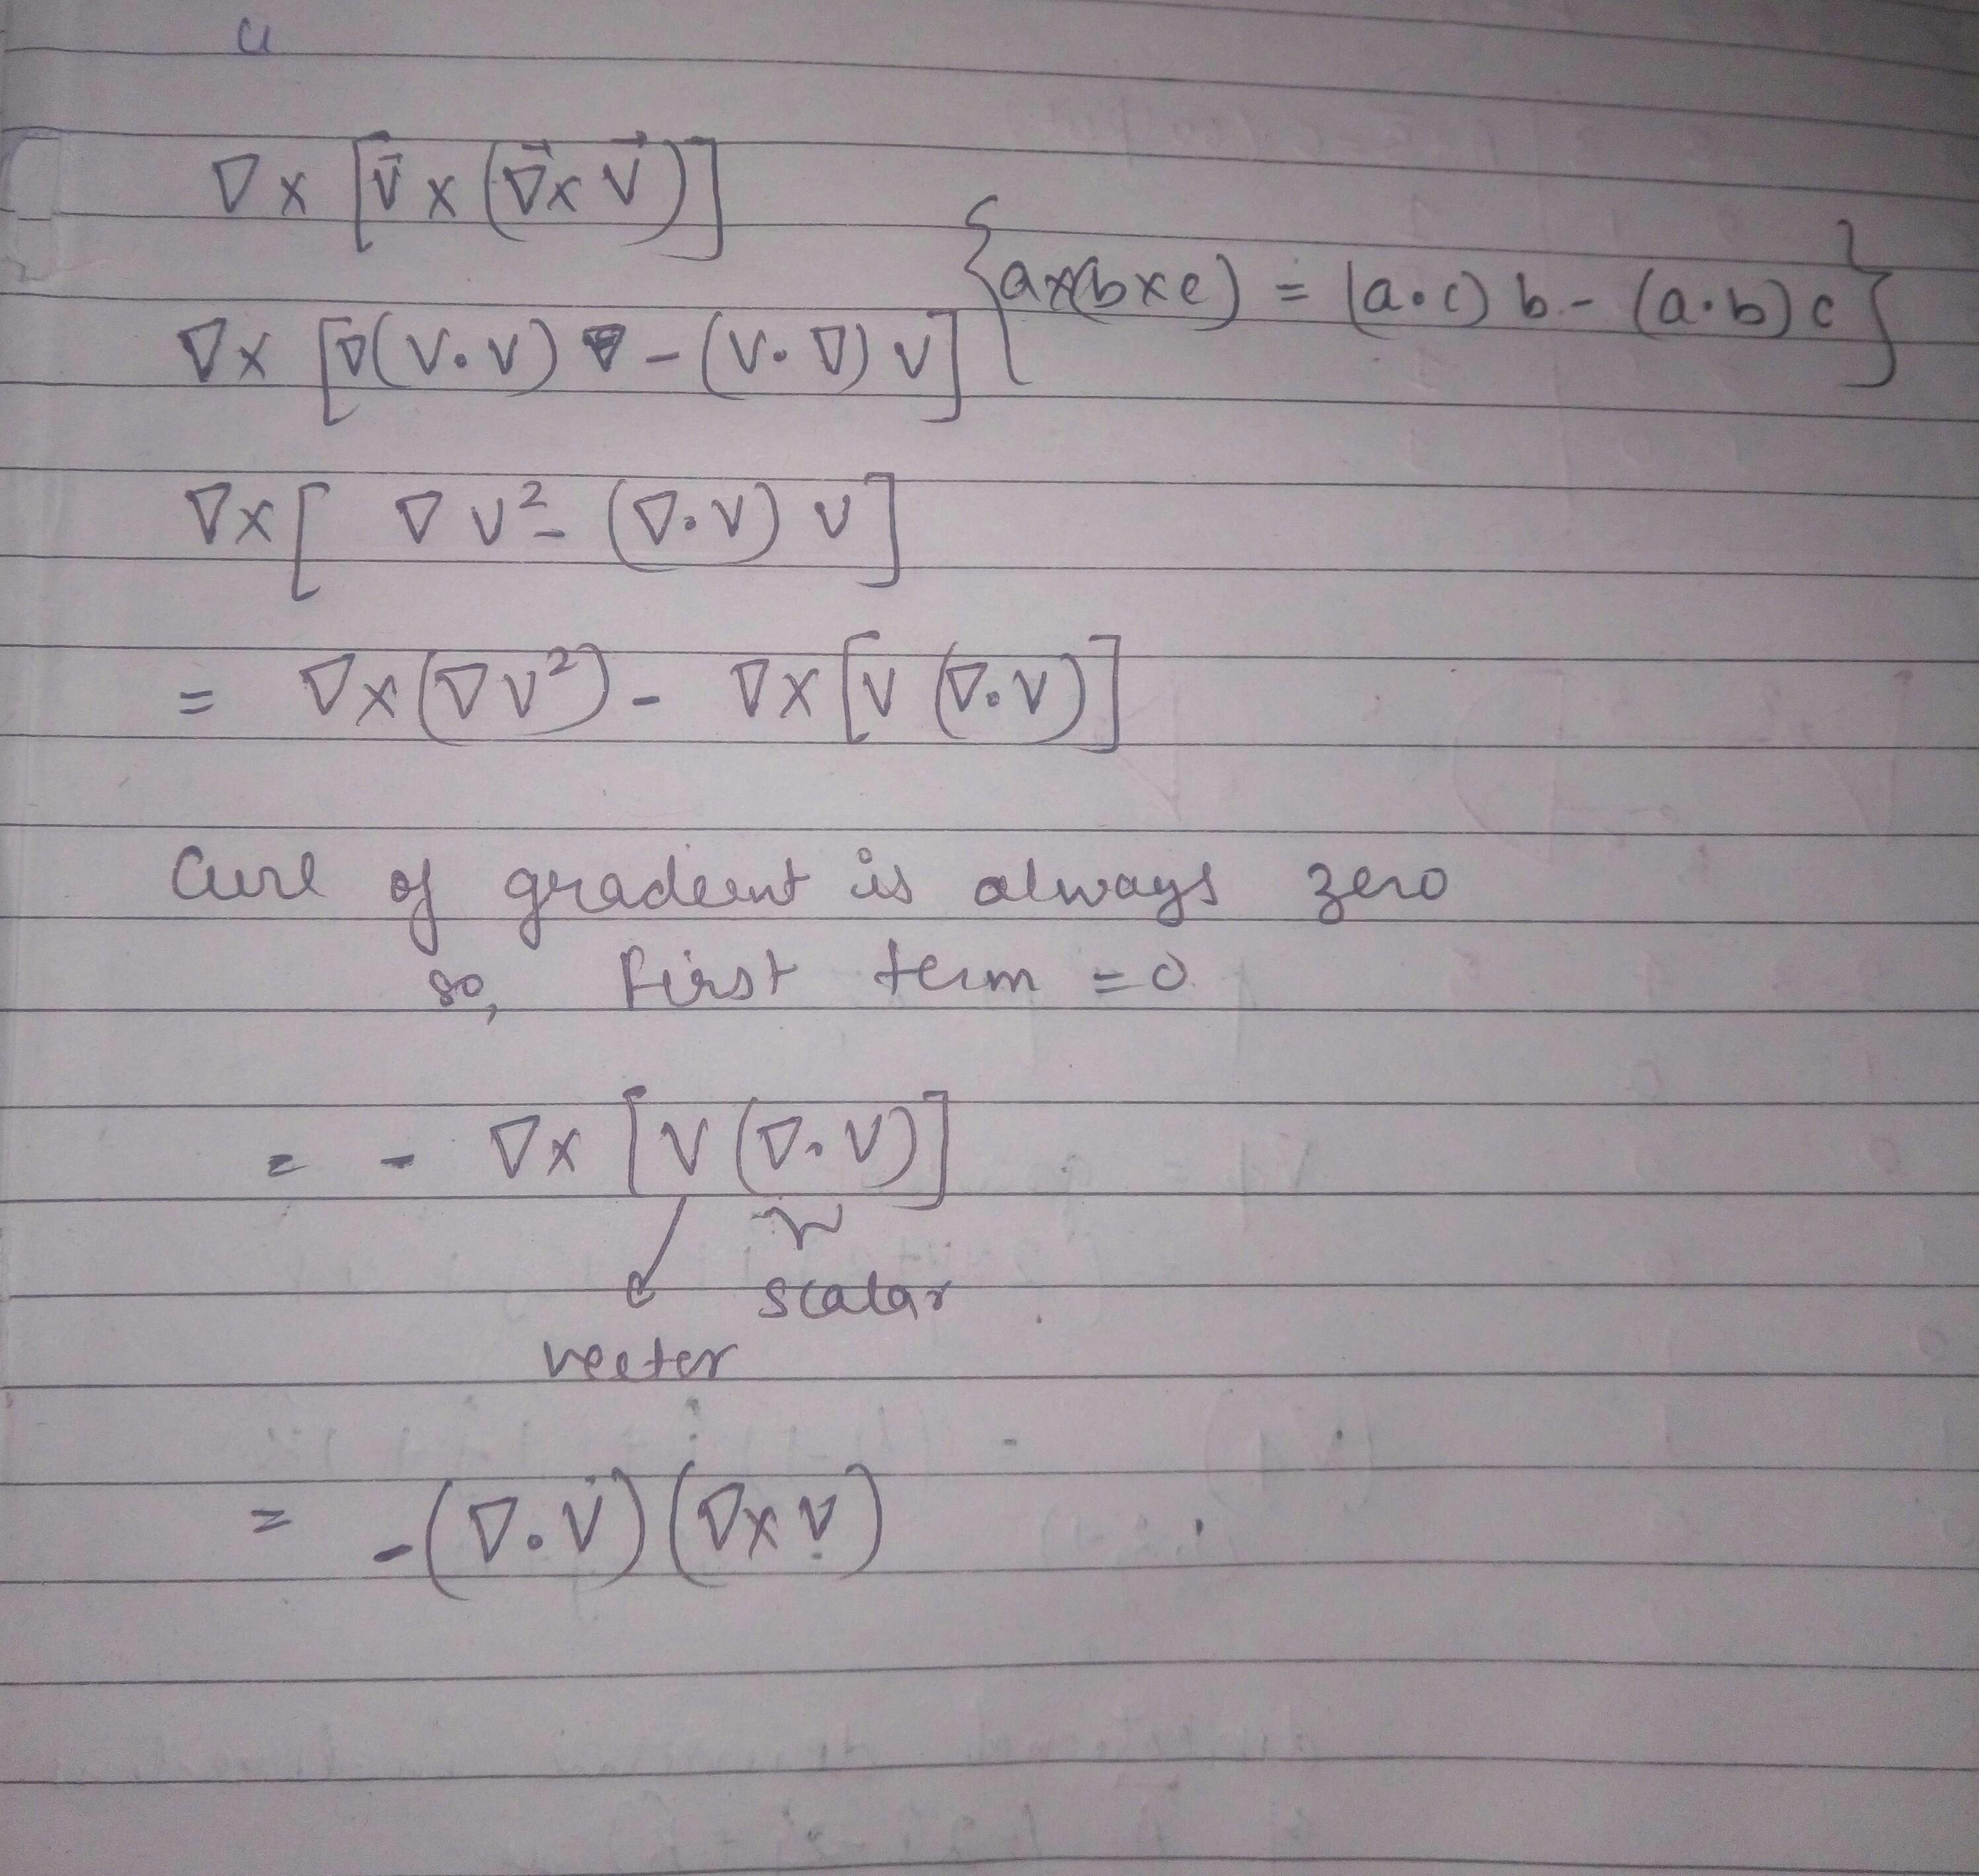 ∇ × [v̄ × (∇⃗ × V⃗)]
{a×(b×c) = (a·c) b - (a·b) c}
∇ × [∇(V·V) - (V·∇) V]
∇ × [ ∇ V² - (∇·V) V]
= ∇ × (∇ V²) - ∇ × [V (∇·V)]
Curl of gradeent is always zero
so, first term = 0
= - ∇ × [V (∇·V)]
scalar
vector
= -(∇·V) (∇ × V)